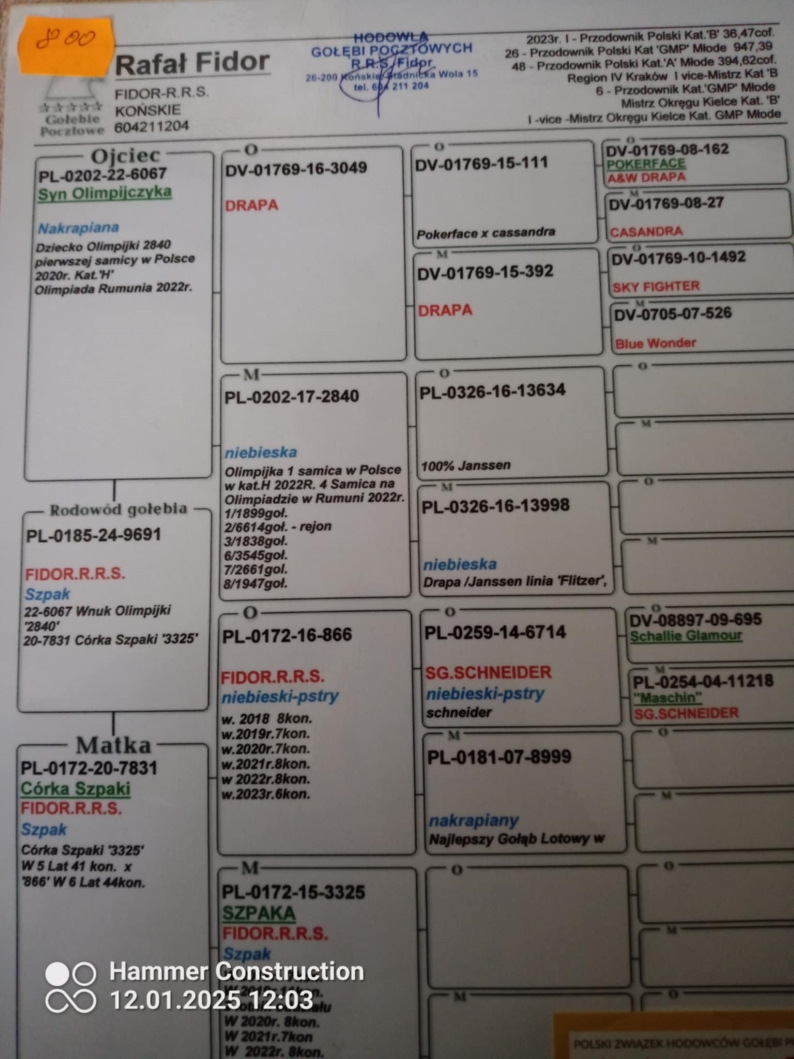 800
Rafał Fidor
FIDOR-R.R.S.
KOŃSKIE
604211204
Gołębie
Pocztowe
HODOWLA
GOŁĘBI POCZTOWYCH
R.R.S. Fidor
26-200 Końskie, Stadnicka Wola 15
tel. 604 211 204
2023r. I - Przodownik Polski Kat.'B' 36,47cof.
26 - Przodownik Polski Kat 'GMP' Młode 947,39
48 - Przodownik Polski Kat.'A' Młode 394,62cof.
Region IV Kraków I vice-Mistrz Kat 'B
6 - Przodownik Kat.'GMP' Młode
Mistrz Okręgu Kielce Kat. 'B'
I -vice -Mistrz Okręgu Kielce Kat. GMP Młode
Ojciec
PL-0202-22-6067
Syn Olimpijczyka
Nakrapiana
Dziecko Olimpijki 2840
pierwszej samicy w Polsce
2020r. Kat.'H'
Olimpiada Rumunia 2022r.
Rodowód gołębia
PL-0185-24-9691
FIDOR.R.R.S.
Szpak
22-6067 Wnuk Olimpijki
'2840'
20-7831 Córka Szpaki '3325'
Matka
PL-0172-20-7831
Córka Szpaki
FIDOR.R.R.S.
Szpak
Córka Szpaki '3325'
W 5 Lat 41 kon. x
'866' W 6 Lat 44kon.
O
DV-01769-16-3049
DRAPA
M
PL-0202-17-2840
niebieska
Olimpijka 1 samica w Polsce
w kat.H 2022R. 4 Samica na
Olimpiadzie w Rumuni 2022r.
1/1899goł.
2/6614goł. - rejon
3/1838goł.
6/3545goł.
7/2661goł.
8/1947goł.
O
PL-0172-16-866
FIDOR.R.R.S.
niebieski-pstry
w. 2018 8kon.
w.2019r.7kon.
w.2020r.7kon.
w.2021r.8kon.
w 2022r.8kon.
w.2023r.6kon.
M
PL-0172-15-3325
SZPAKA
FIDOR.R.R.S.
Szpak
W 2020r. 8kon.
W 2021r.7kon
W 2022r. 8kon.
O
DV-01769-15-111
Pokerface x cassandra
M
DV-01769-15-392
DRAPA
O
PL-0326-16-13634
100% Janssen
M
PL-0326-16-13998
niebieska
Drapa /Janssen linia 'Flitzer',
O
PL-0259-14-6714
SG.SCHNEIDER
niebieski-pstry
schneider
M
PL-0181-07-8999
nakrapiany
Najlepszy Gołąb Lotowy w
O
M
O
DV-01769-08-162
POKERFACE
A&W DRAPA
M
DV-01769-08-27
CASANDRA
O
DV-01769-10-1492
SKY FIGHTER
M
DV-0705-07-526
Blue Wonder
O
M
O
M
O
DV-08897-09-695
Schallie Glamour
M
PL-0254-04-11218
"Maschin"
SG.SCHNEIDER
O
M
O
M
O
POLSKI ZWIĄZEK HODOWCÓW GOŁĘBI
Hammer Construction
12.01.2025 12:03